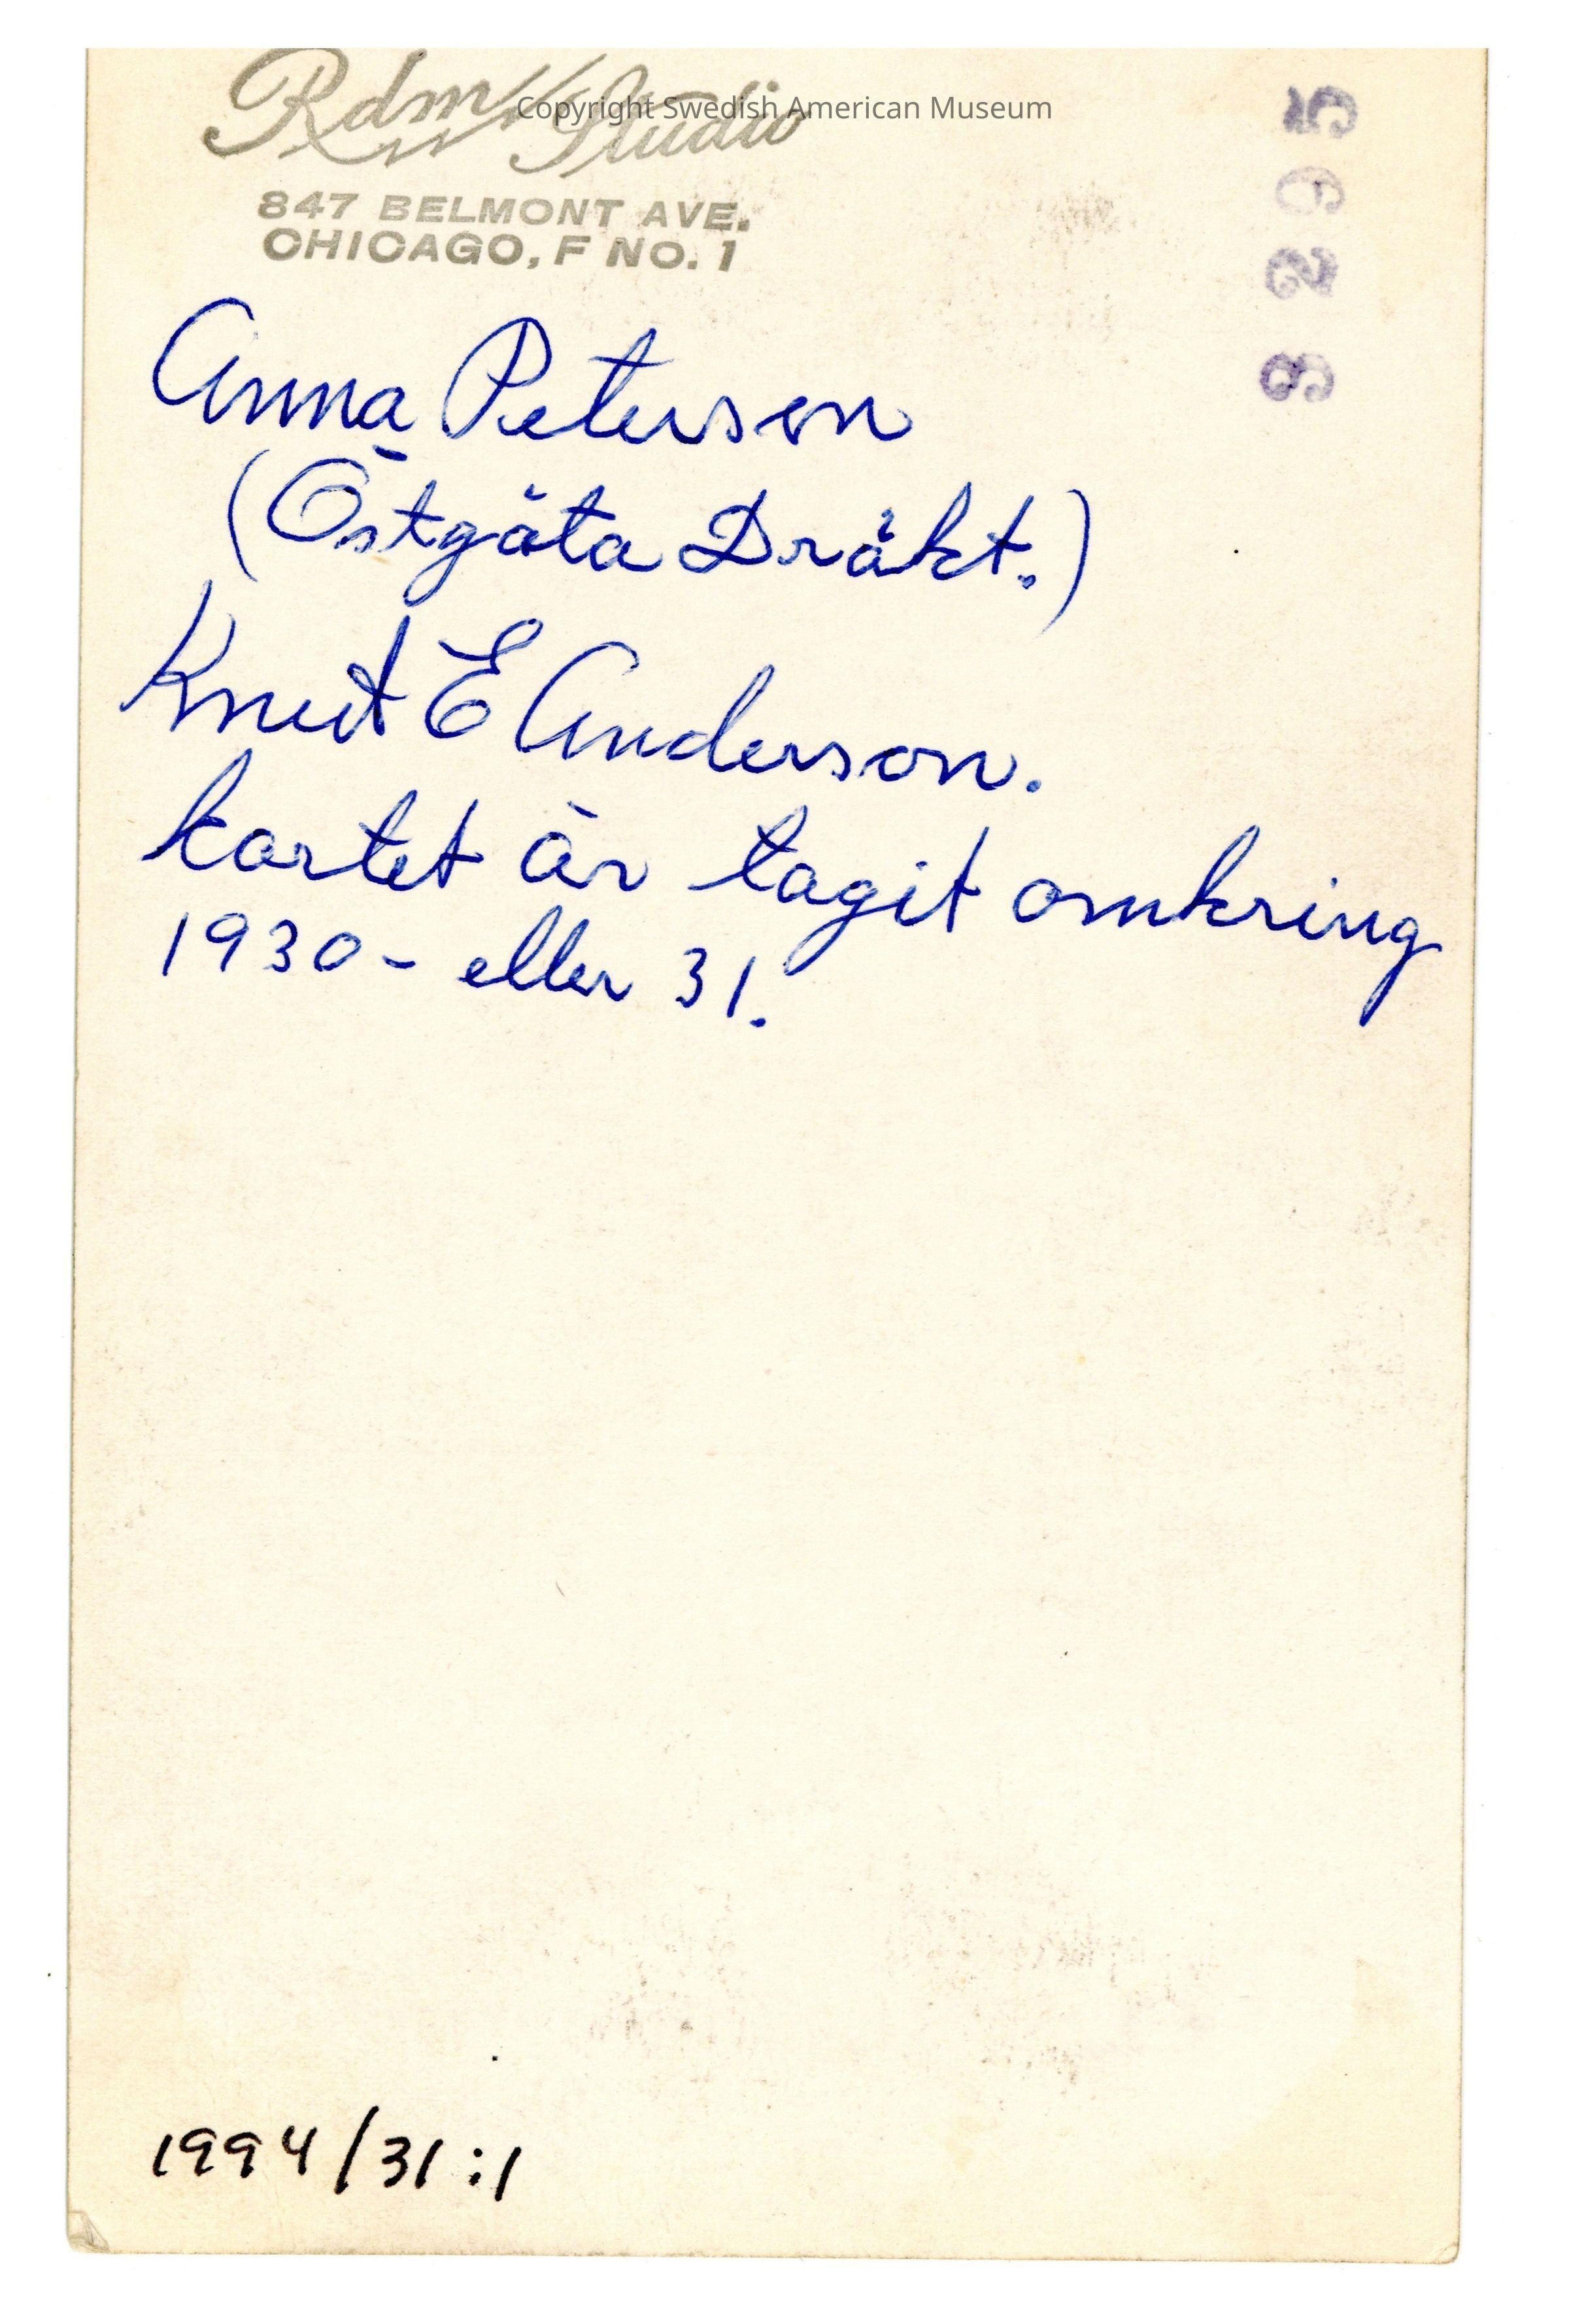 Studio
Copyright Swedish American Museum
847 BELMONT AVE.
CHICAGO, F NO. 1
Anna Peterson
(Östgöta Dräkt.)
Knut E Anderson.
kortet är tagit omkring
1930 - eller 31.
1994/31:1